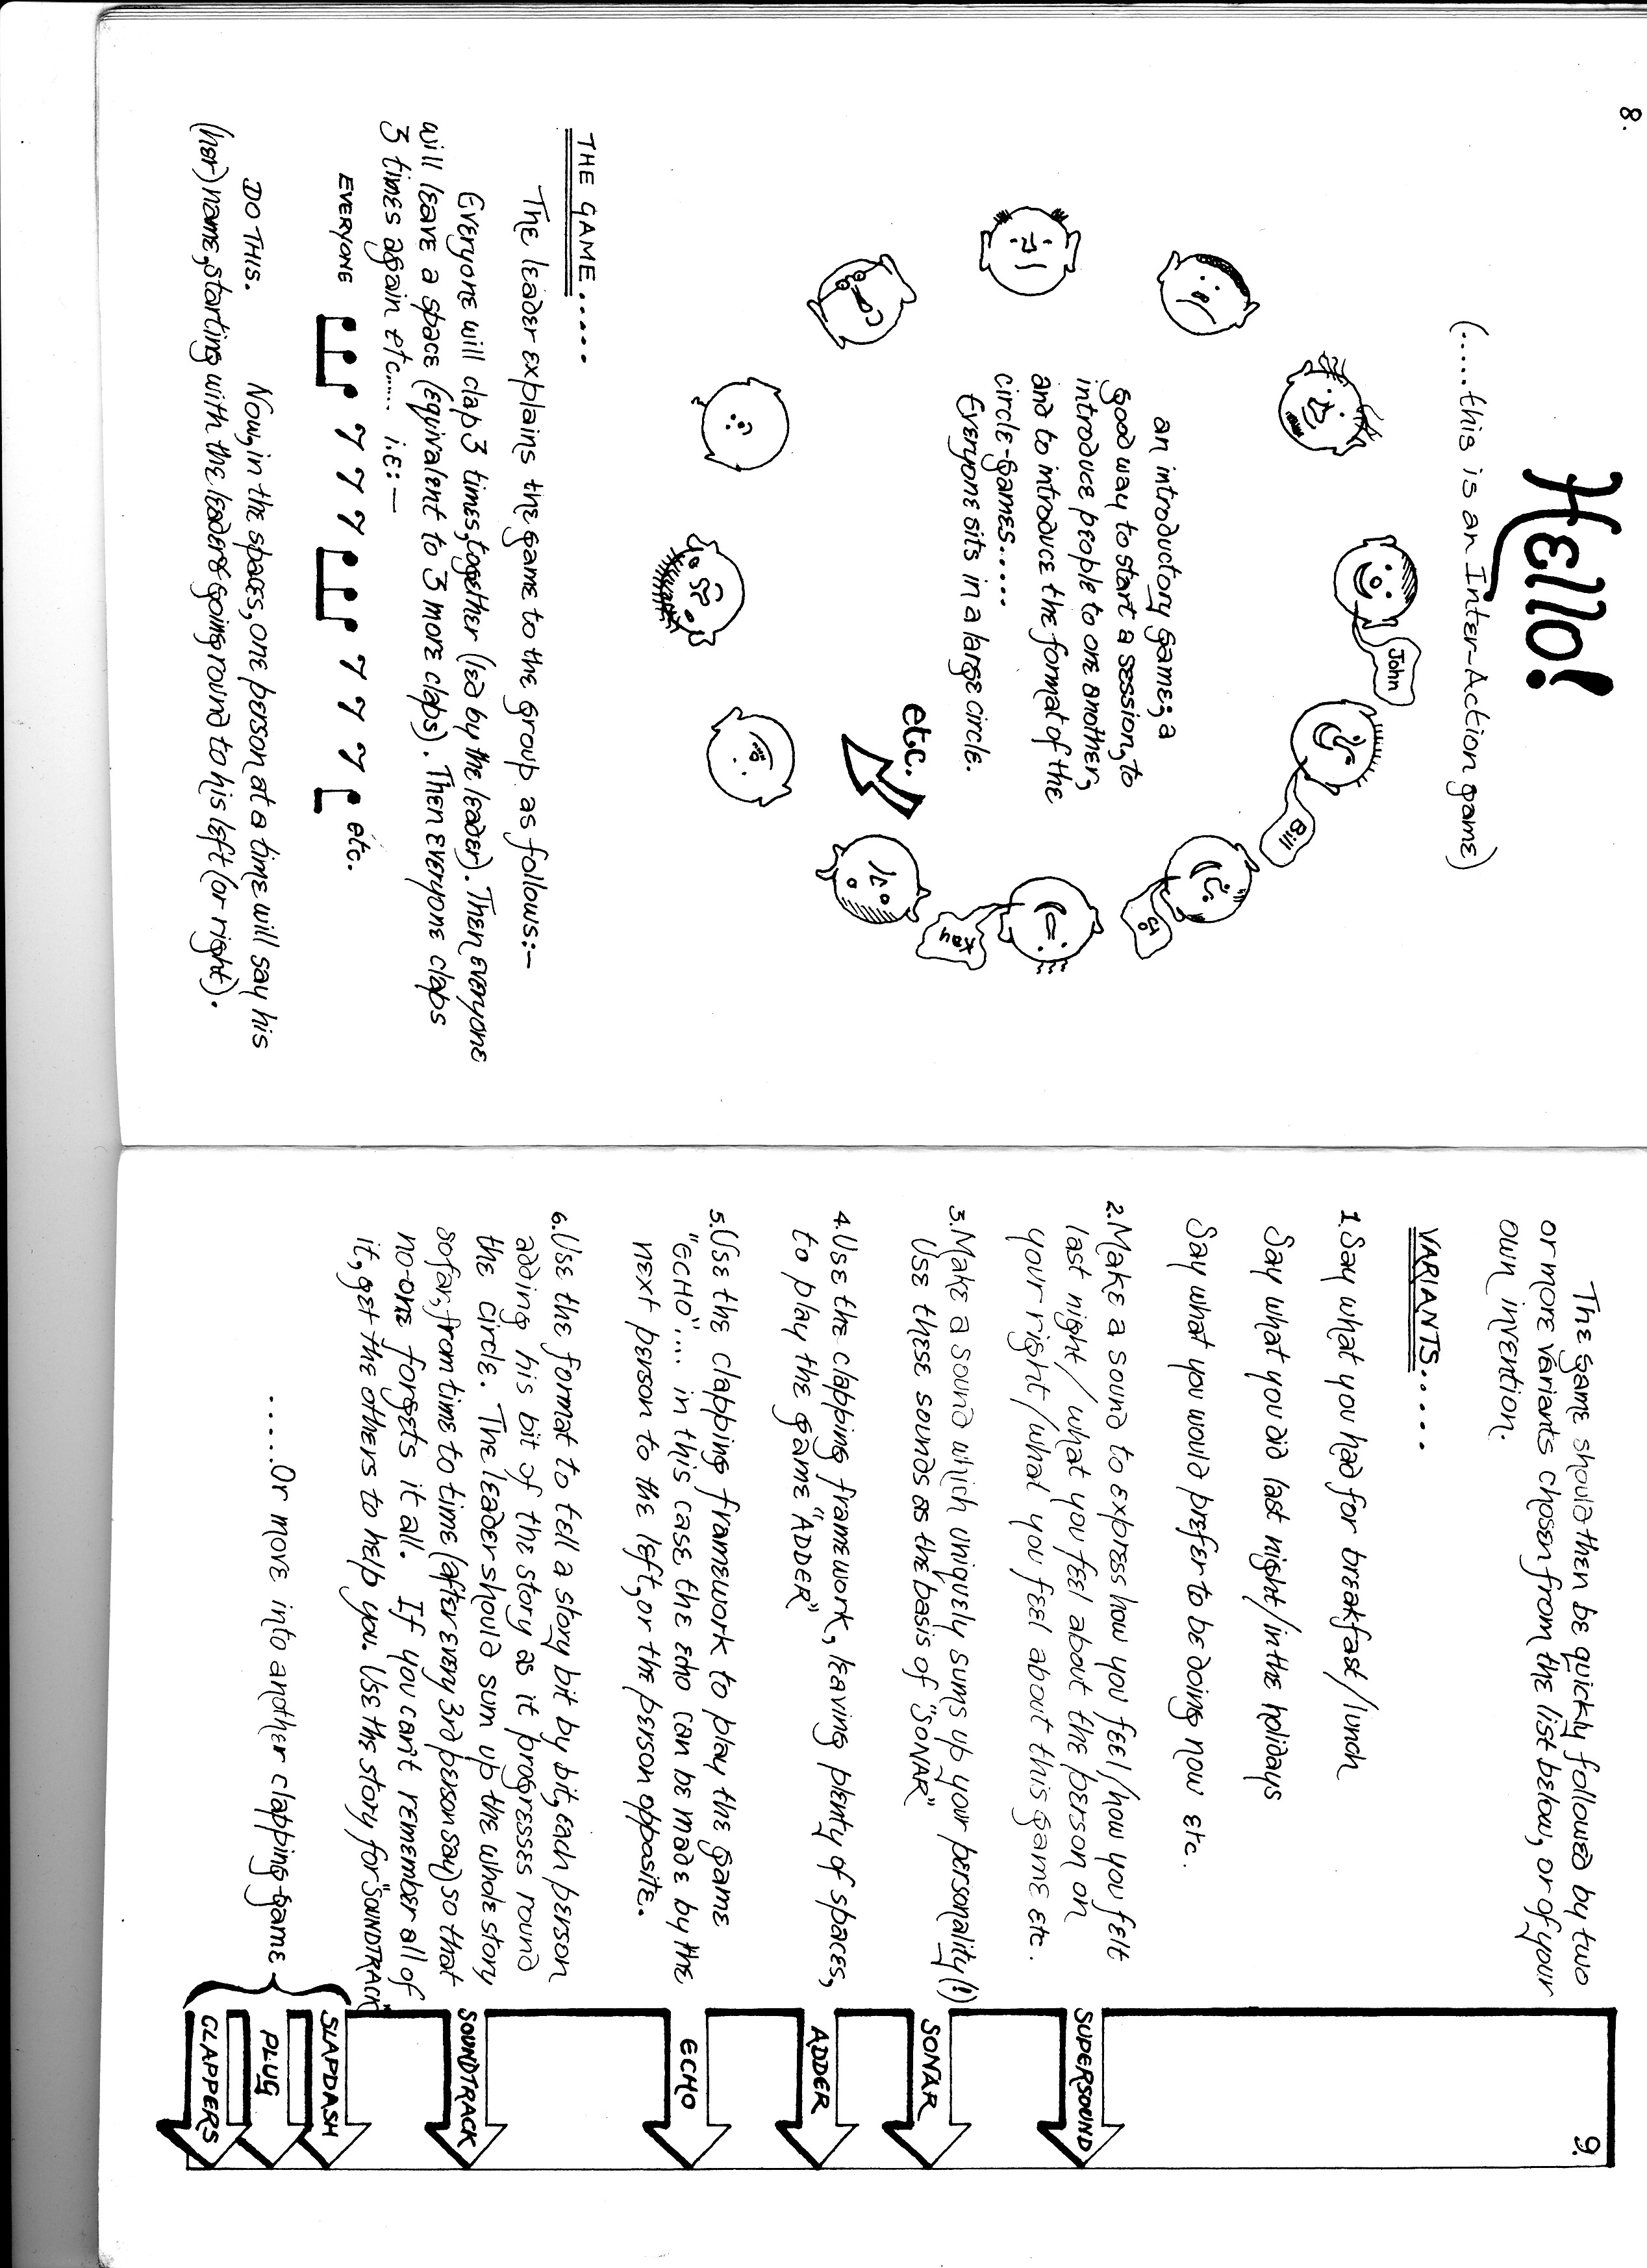 8.
Hello!
(.....this is an Inter-Action game)
John
Bill
Jo
Kay
etc.
an introductory game; a
good way to start a session, to
introduce people to one another,
and to introduce the format of the
circle-games.....
Everyone sits in a large circle.
THE GAME.....
The leader explains the game to the group as follows:-
Everyone will clap 3 times, together (led by the leader). Then everyone
will leave a space (equivalent to 3 more claps). Then everyone claps
3 times again etc..... i.e:-
EVERYONE etc.
DO THIS. Now, in the spaces, one person at a time will say his
(her) name, starting with the leader & going round to his left (or right).
9.
The game should then be quickly followed by two
or more variants chosen from the list below, or of your
own invention.
VARIANTS.....
1. Say what you had for breakfast/lunch
Say what you did last night/in the holidays
Say what you would prefer to be doing now etc.
2. Make a sound to express how you feel/how you felt
last night/what you feel about the person on
your right/what you feel about this game etc.
SUPERSOUND
3. Make a sound which uniquely sums up your personality(!)
Use these sounds as the basis of "SONAR"
SONAR
4. Use the clapping framework, leaving plenty of spaces,
to play the game "ADDER"
ADDER
5. Use the clapping framework to play the game
"ECHO".... in this case the echo can be made by the
next person to the left, or the person opposite.
ECHO
6. Use the format to tell a story bit by bit, each person
adding his bit of the story as it progresses round
the circle. The leader should sum up the whole story
so far, from time to time (after every 3rd person say) so that
no-one forgets it all. If you can't remember all of
it, get the others to help you. Use the story for "SOUNDTRACK"
SOUNDTRACK
......Or move into another clapping game
SLAPDASH
PLUG
CLAPPERS